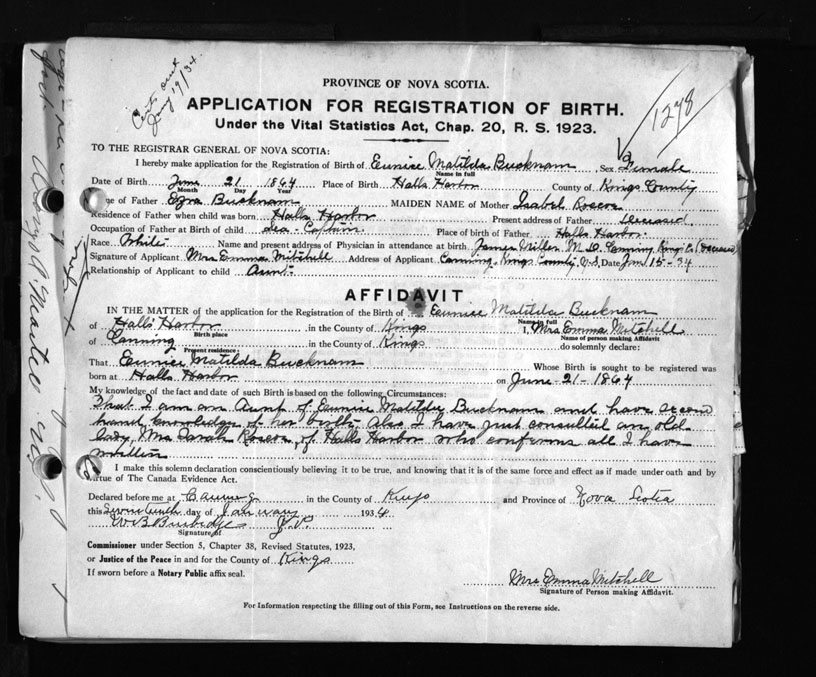 Cert. sent
Jany 19/34.
1278
PROVINCE OF NOVA SCOTIA.
APPLICATION FOR REGISTRATION OF BIRTH.
Under the Vital Statistics Act, Chap. 20, R. S. 1923.
TO THE REGISTRAR GENERAL OF NOVA SCOTIA:
I hereby make application for the Registration of Birth of Eunice Matilda Bucknam Sex Female
Name in full
Date of Birth June 21 1864 Place of Birth Halls Harbor County of Kings County
Month Day Year
Name of Father Ezra Bucknam MAIDEN NAME of Mother Isabel Roscoe
Residence of Father when child was born Halls Harbor Present address of Father Deceased.
Occupation of Father at Birth of child Sea-Captain Place of birth of Father Halls Harbor.
Race White Name and present address of Physician in attendance at birth James Miller M.D. Canning Kings Co. (Deceased)
Signature of Applicant Mrs Emma Mitchell Address of Applicant Canning, Kings County, N.S. Date Jan 15-34
Relationship of Applicant to child Aunt.
AFFIDAVIT
IN THE MATTER of the application for the Registration of the Birth of Eunice Matilda Bucknam
Name in full
of Halls Harbor in the County of Kings I, Mrs Emma Mitchell
Birth place Name of person making Affidavit
of Canning in the County of Kings do solemnly declare:
Present residence
That Eunice Matilda Bucknam Whose Birth is sought to be registered was
born at Halls Harbor on June-21-1864
My knowledge of the fact and date of such Birth is based on the following Circumstances:
That I am an Aunt of Eunice Matilda Bucknam and have second
hand knowledge of her birth. Also I have just consulted an old
lady, Mrs Sarah Roscoe, of Halls Harbor who confirms all I have
written
I make this solemn declaration conscientiously believing it to be true, and knowing that it is of the same force and effect as if made under oath and by
virtue of The Canada Evidence Act.
Declared before me at Canning in the County of Kings and Province of Nova Scotia
this Seventeenth day of January 1934
W B Burbidge J.P.
Signature of
Commissioner under Section 5, Chapter 38, Revised Statutes, 1923,
or Justice of the Peace in and for the County of Kings
If sworn before a Notary Public affix seal.
Mrs Emma Mitchell
Signature of Person making Affidavit.
For Information respecting the filling out of this Form, see Instructions on the reverse side.